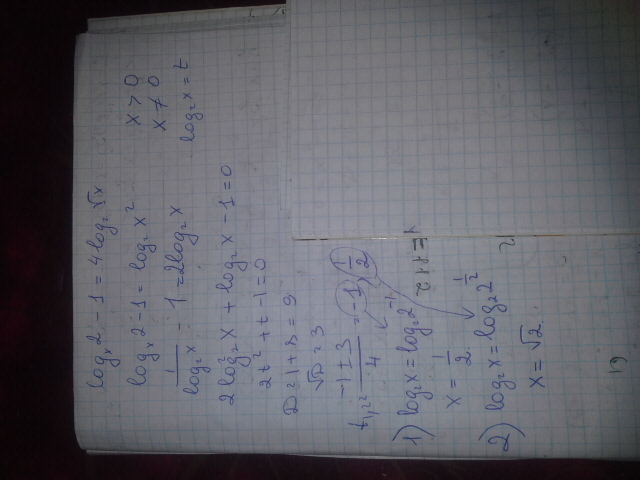 logₓ2 - 1 = 4log₂√x
logₓ2 - 1 = log₂x²
x > 0
x ≠ 0
1/log₂x - 1 = 2log₂x
log₂x = t
2log₂²x + log₂x - 1 = 0
2t² + t - 1 = 0
D = 1 + 8 = 9
√D = 3
t₁,₂ = (-1 ± 3)/4 = -1; 1/2
1) log₂x = log₂2⁻¹
x = 1/2
2) log₂x = log₂2^(1/2)
x = √2